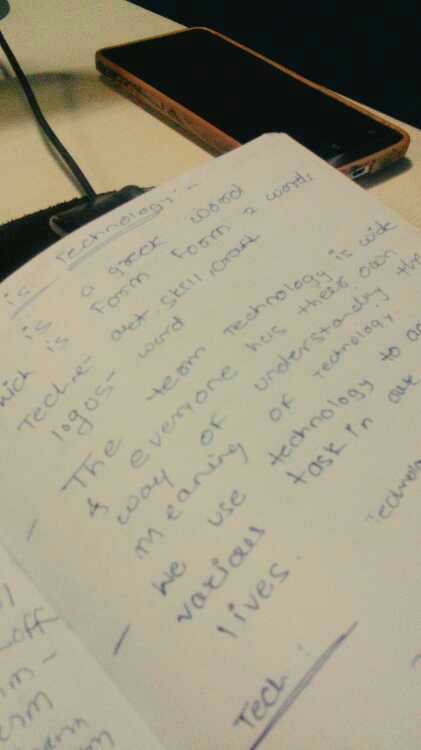 is Technology:-
is a greek word
wich is form form 2 words
Techne- art, skill, craft
logos- word
The team technology is wide
& everyone has their own
way of understanding the
meaning of technology.
We use technology to
various task in our
lives.
Technolo
Tech: